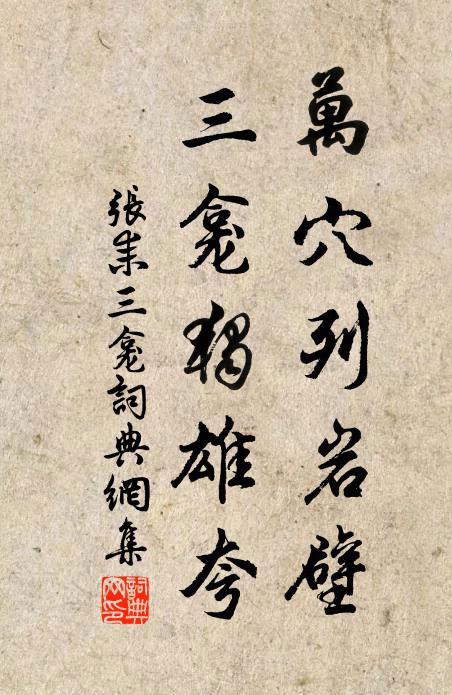 萬穴列岩壁
三龕獨雄夸
張耒三龕詞典網集
詞典網印